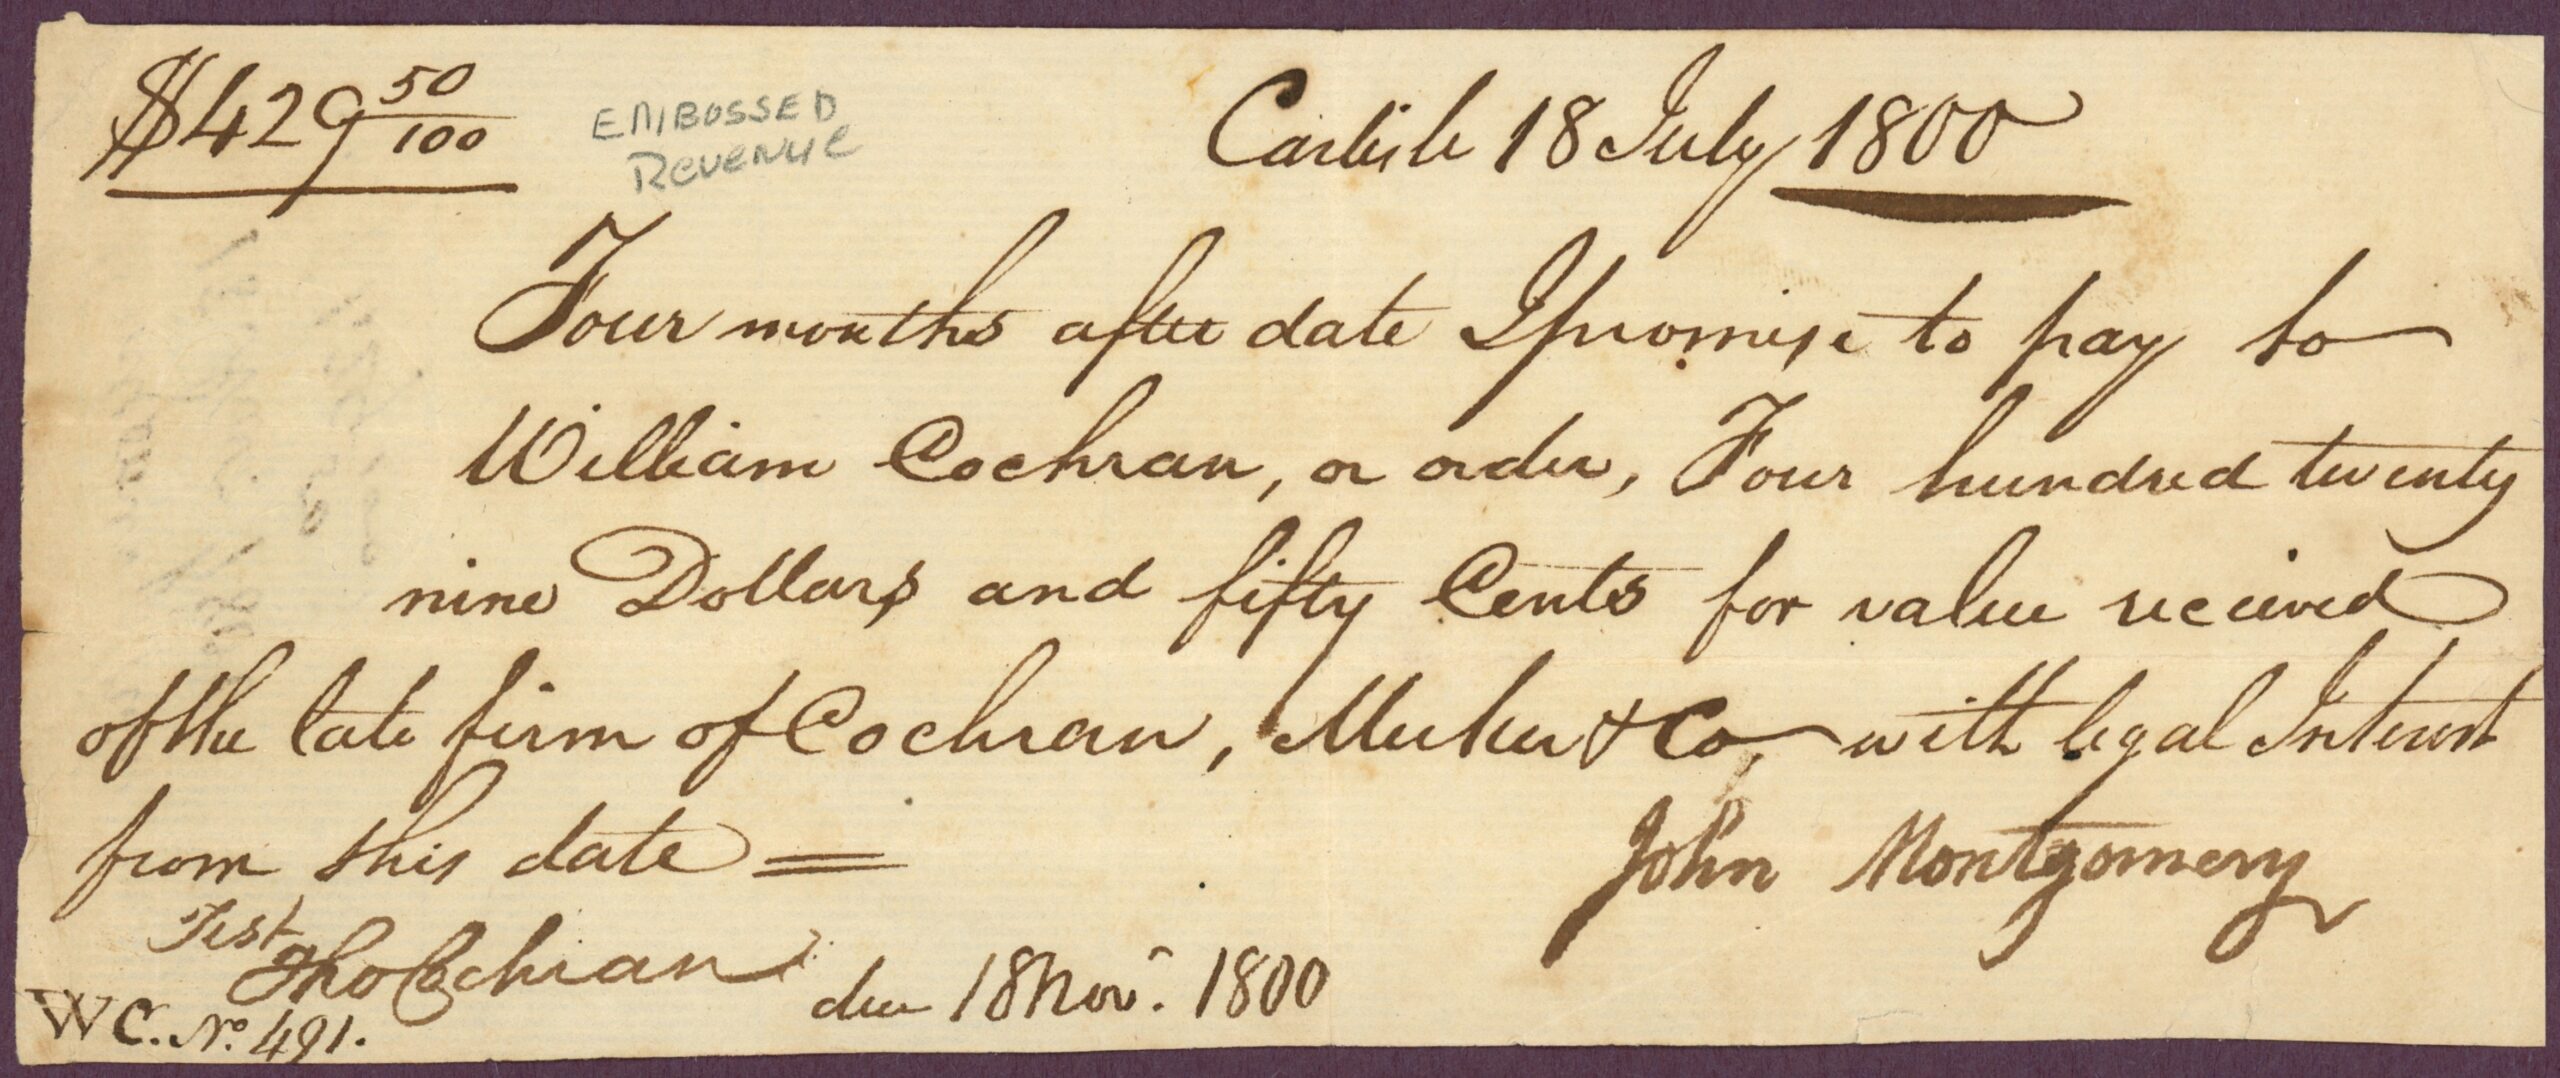 $429 50/100
EMBOSSED
REVENUE
Carlisle 18 July 1800
Four months after date I promise to pay to
William Cochran, or order, Four hundred twenty
nine Dollars and fifty Cents for value received
of the late firm of Cochran, & Co, with legal Interest
from this date =
John Montgomery
Test
Tho Cochran
due 18 Novr. 1800
WC. No. 491.